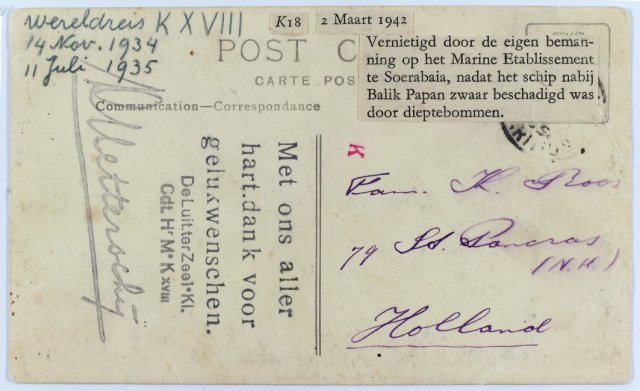 wereldreis K XVIII
14 Nov. 1934
11 Juli 1935
K18
2 Maart 1942
POST C
CARTE.POS
Vernietigd door de eigen beman-
ning op het Marine Etablissement
te Soerabaia, nadat het schip nabij
Balik Papan zwaar beschadigd was
door dieptebommen.
Communication—Correspondance
Met ons aller
hart.dank voor
gelukwenschen.
De Luit.ter Zee 1e Kl.
Cdt. Hr Ms K XVIII
K
Fam. K. Roos
79 St. Pancras
(N.H.)
Holland